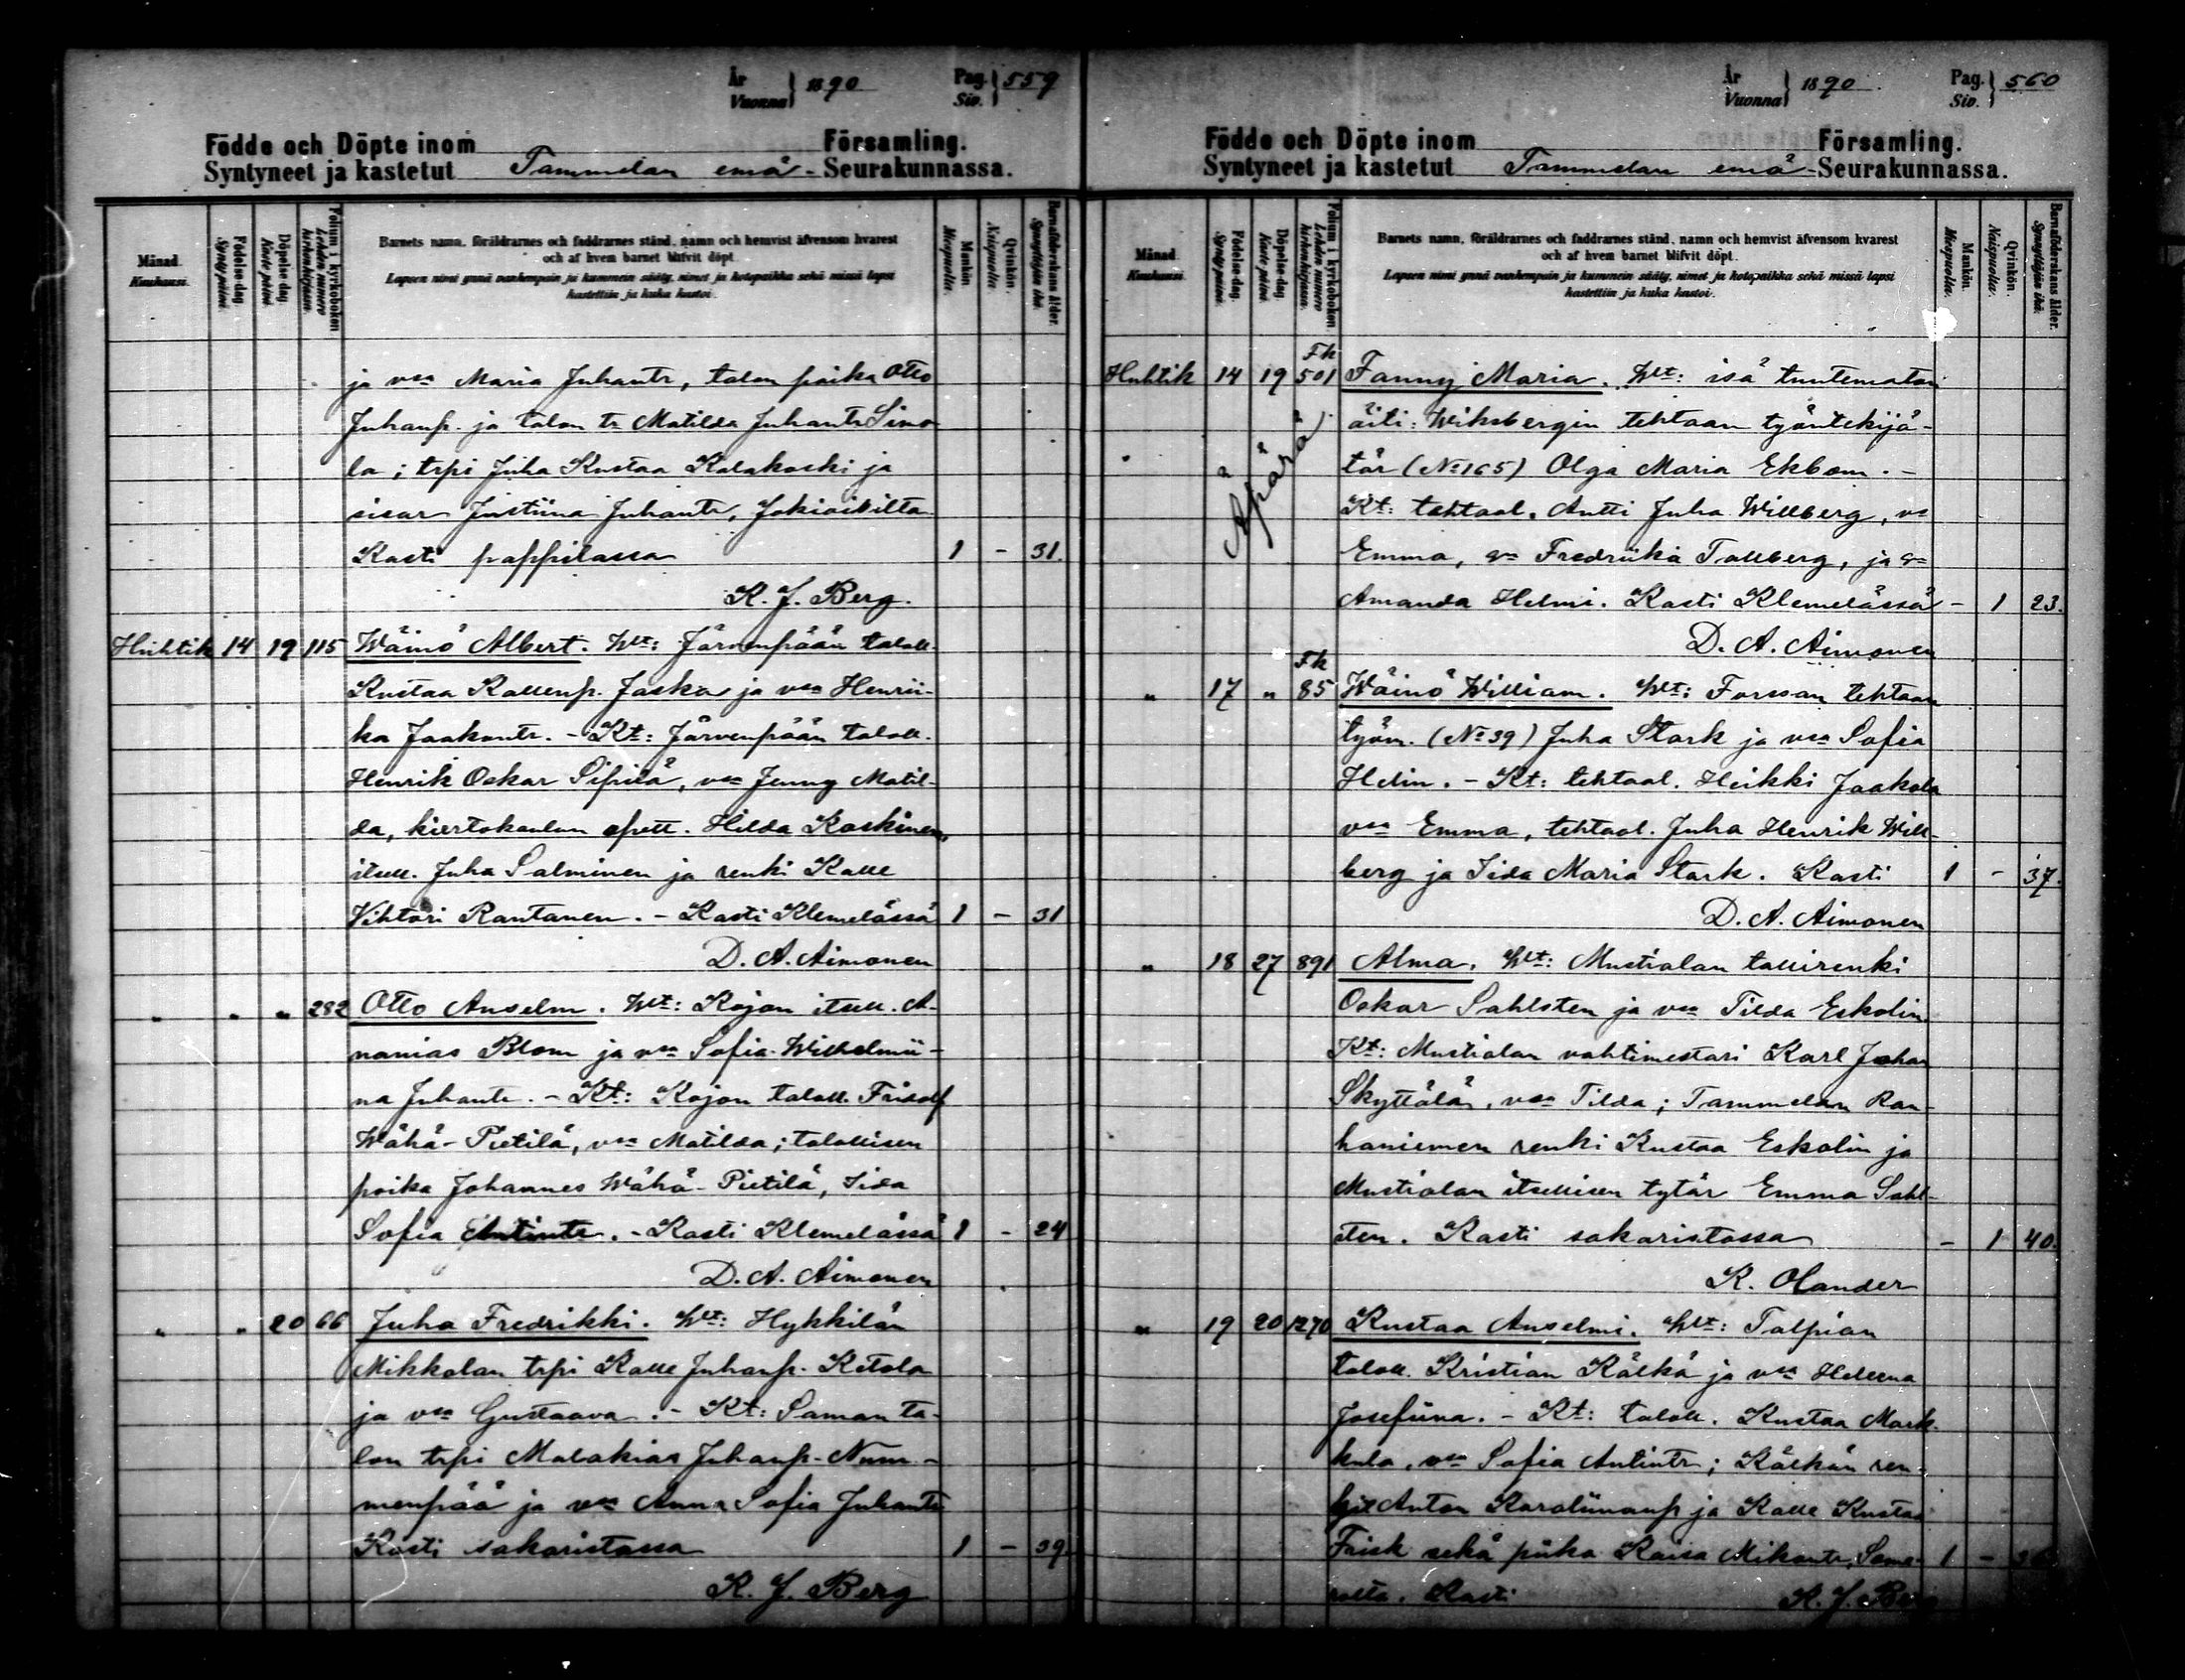 År
Vuonna } 1890 Pag.
Siv. } 559
Födde och Döpte inom Församling.
Syntyneet ja kastetut Tammelan emä- Seurakunnassa.
Månad.
Kuukausi.
Födelse-dag.
Syntypäivä.
Döpelse-dag.
Kastepäivä.
Folium i kyrkoboken.
Lehden numero kirkonkirjassa.
Barnets namn, föräldrarnes och faddrarnes stånd, namn och hemvist äfvensom hvarest
och af hvem barnet blifvit döpt.
Lapsen nimi ynnä vanhempain ja kummein sääty, nimet ja kotopaikka sekä missä lapsi
kastettiin ja kuka kastoi.
Mankön.
Miespuolia.
Qvinkön.
Naispuolia.
Barnaföderskans ålder.
Synnyttäjän ikä.
ja vsa Maria Juhantr, talon poika Otto
Juhanp. ja talon tr Matilda Juhantr Simo-
la; trpi Juha Kustaa Kalakoski ja
sisar Justiina Juhantr, Jokioisilta
Kasti pappilassa 1 - 31.
K. J. Berg.
Huhtik 14 19 115 Wäinö Albert. Wlt: Järvenpään taloll.
Kustaa Kallenp. Jaska ja vsa Henrii-
ka Jaakontr. - Kt: Järvenpään taloll.
Henrik Oskar Sipilä, vsa Jenny Matil-
da, kiertokoulun opett. Hilda Koskinen,
itsell. Juha Salminen ja renki Kalle
Vihtori Rantanen. - Kasti Klemelässä 1 - 31
D. A. Aimonen
" " " 282 Otto Anselm. Wlt: Kojon itsell. A-
nanias Blom ja vsa Sofia Wilhelmii-
na Juhantr. - Kt: Kojon taloll. Fridolf
Wähä-Pietilä, vsa Matilda; talollisen
poika Johannes Wähä-Pietilä, Iida
Sofia Antintr. - Kasti Klemelässä 1 - 24
D. A. Aimonen
" " 20 66 Juha Fredrikki. Wlt: Hykkilän
Mikkolan trpi Kalle Juhanp. Ketola
ja vsa Gustaava. - Kt: Saman ta-
lon trpi Malakias Juhanp. Num-
menpää ja vsa Anna Sofia Juhantr
Kasti sakaristassa 1 - 39.
K. J. Berg
År
Vuonna } 1890. Pag.
Siv. } 560
Födde och Döpte inom Församling.
Syntyneet ja kastetut Tammelan emä- Seurakunnassa.
Månad.
Kuukausi.
Födelse-dag.
Syntypäivä.
Döpelse-dag.
Kastepäivä.
Folium i kyrkoboken.
Lehden numero kirkonkirjassa.
Barnets namn, föräldrarnes och faddrarnes stånd, namn och hemvist äfvensom hvarest
och af hvem barnet blifvit döpt.
Lapsen nimi ynnä vanhempain ja kummein sääty, nimet ja kotopaikka sekä missä lapsi
kastettiin ja kuka kastoi.
Mankön.
Miespuolia.
Qvinkön.
Naispuolia.
Barnaföderskans ålder.
Synnyttäjän ikä.
Fk
Huhtik 14 19 501 Fanny Maria. Wlt: isä tuntematon
Äpärä
äiti: Wiksbergin tehtaan työntekijä-
tär (No 165) Olga Maria Ekbom. -
Kt: tehtaal. Antti Juha Willberg, vs
Emma, Fredriika Tallberg, ja
Amanda Helmi. Kasti Klemelässä - 1 23.
D. A. Aimonen
Fk
" 17 " 85 Wäinö William. Wlt: Forssan tehtaan
työm. (No 39) Juha Stark ja vsa Sofia
Helin. - Kt: tehtaal. Heikki Jaakola
vsa Emma, tehtaal. Juha Henrik Will-
berg ja Iida Maria Stark. Kasti 1 - 37.
D. A. Aimonen
" 18 27 891 Alma. Wlt: Mustialan tallirenki
Oskar Sahlsten ja vsa Tilda Eskolin.
Kt: Mustialan vahtimestari Karl Johan
Skyttälä, vsa Tilda; Tammelan Kau-
haniemen renki Kustaa Eskolin ja
Mustialan itsellisen tytär Emma Sahl-
sten. Kasti sakaristassa - 1 40.
K. Olander
" 19 20 1270 Kustaa Anselmi. Wlt: Talpian
taloll. Kristian Kälkä ja vsa Heleena
Josefiina. - Kt: taloll. Kustaa Mark-
kula, vsa Sofia Antintr; Kälkän ren-
git Anton Karoliinanp ja Kalle Kustaa
Frisk sekä piika Kaisa Mikontr, Some- 1 -
rolta. Kasti K. J. Berg